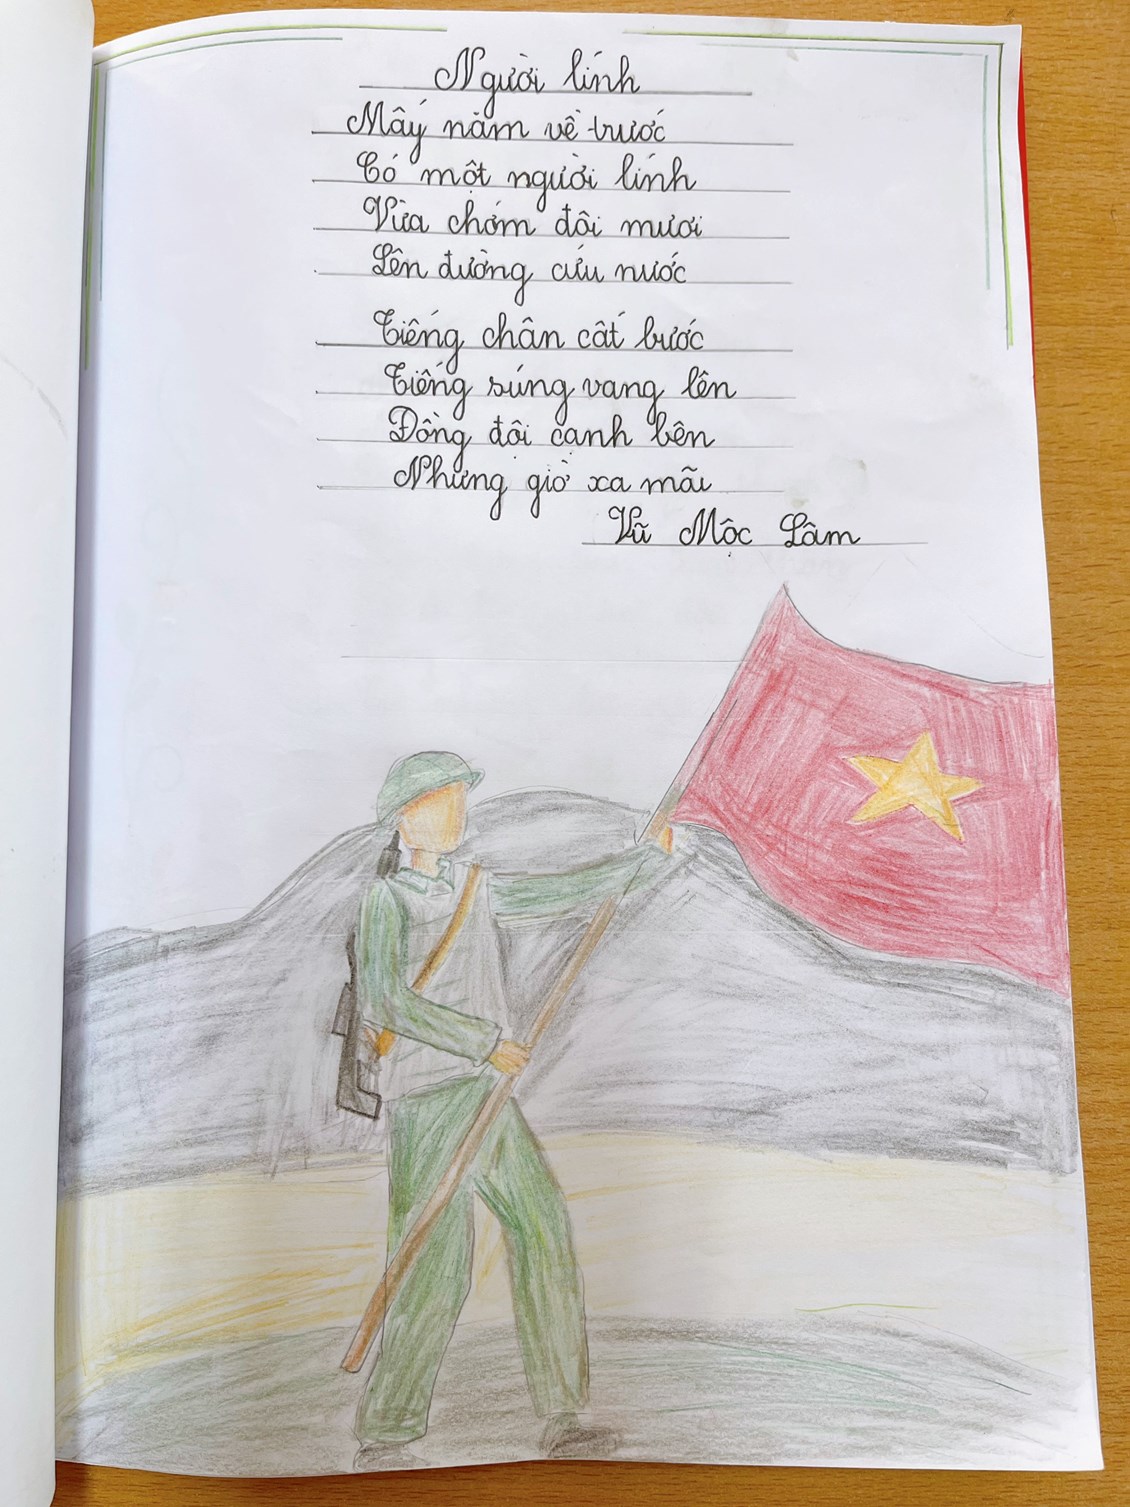 Người lính
Mấy năm về trước
Có một người lính
Vừa chớm đôi mươi
Lên đường cứu nước
Tiếng chân cất bước
Tiếng súng vang lên
Đồng đội cạnh bên
Nhưng giờ xa mãi
Vũ Mộc Lâm